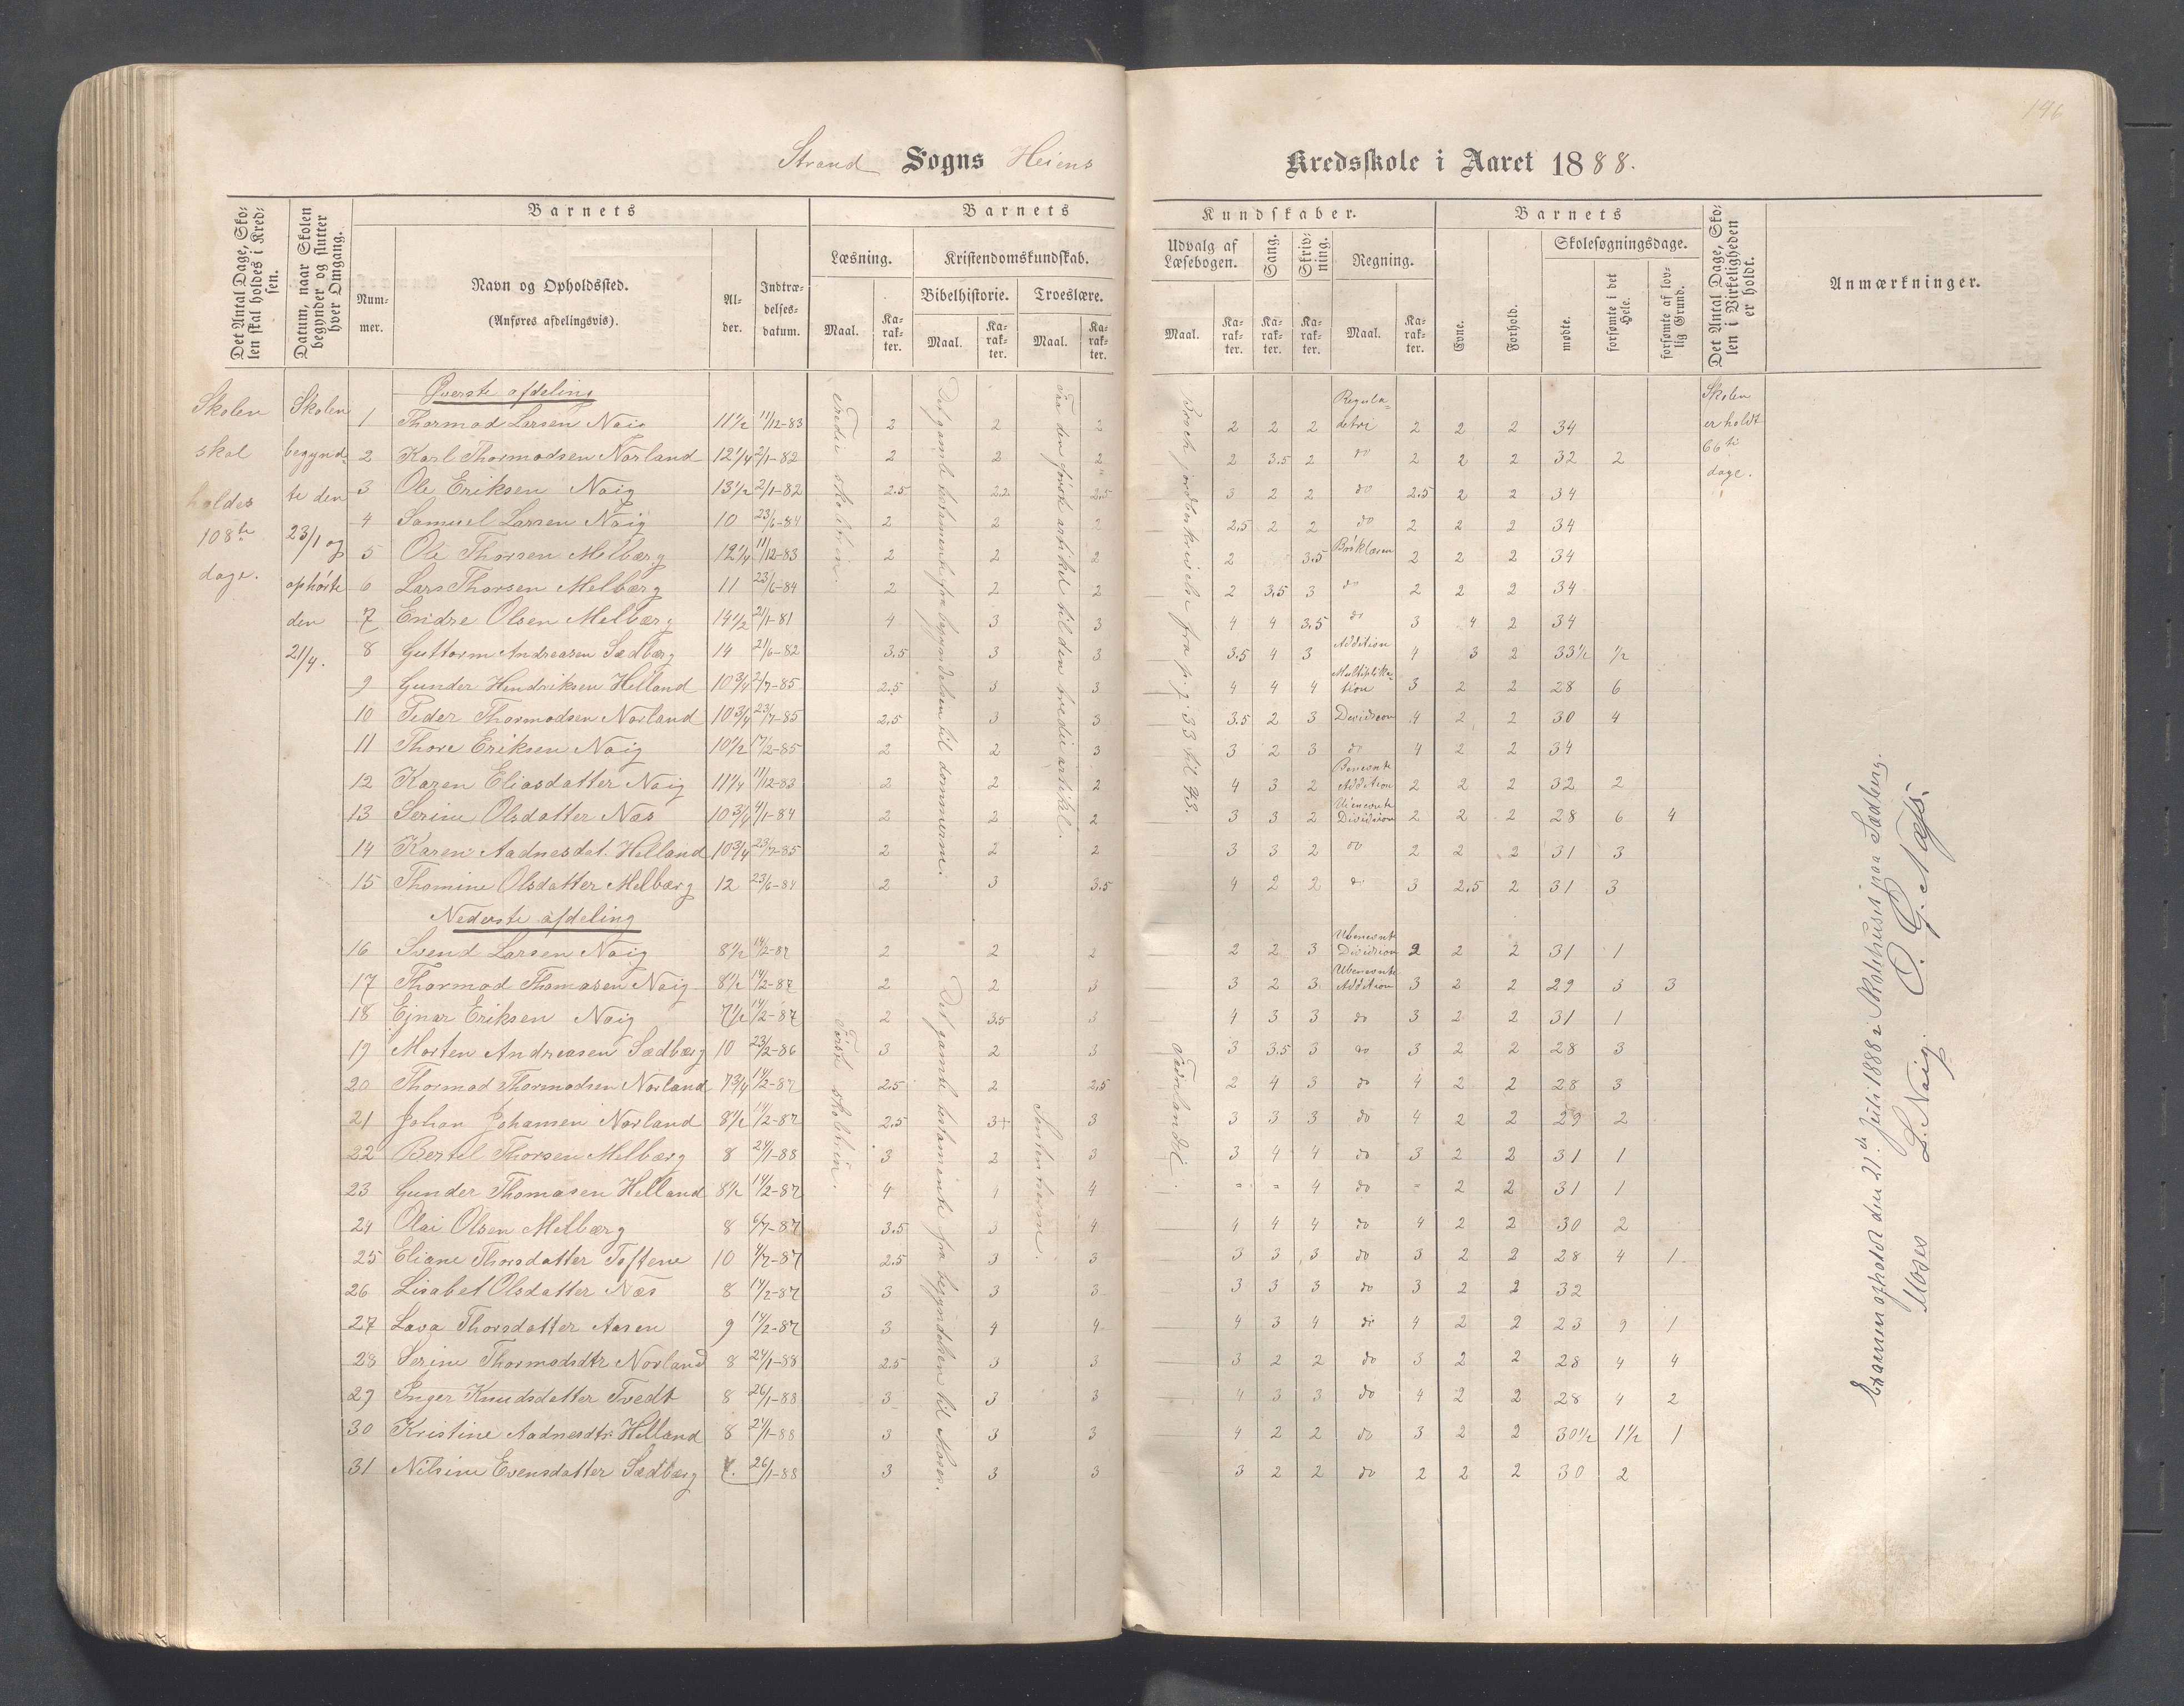 146
Strand Sogns Heiens Kredsskole i Aaret 1888.
Det Antal Dage, Skolen skal holdes i Kredsen.
Datum, naar Skolen begynder og slutter hver Omgang.
Barnets
Nummer.
Navn og Opholdssted.
(Anføres afdelingsvis).
Alder.
Indtrædelsesdatum.
Barnets
Kundskaber.
Læsning.
Kristendomskundskab.
Bibelhistorie.
Troeslære.
Udvalg af Læsebogen.
Sang.
Skrivning.
Regning.
Maal.
Karakter.
Maal.
Karakter.
Maal.
Karakter.
Maal.
Karakter.
Karakter.
Karakter.
Maal.
Karakter.
Barnets
Evne.
Forhold.
Skolesøgningsdage.
mødte.
forsømte i det Hele.
forsømte af lovlig Grund.
Det Antal Dage, Skolen i Virkeligheden er holdt.
Anmærkninger.
Skolen
skal
holdes
108te
dage.
Skolen
begynd-
te den
23/1 og
ophørte
den
21/4.
Skolen
er holdt
66ti
dage.
Tredie skoletrin.
Det gamle testamente fra begyndelsen til dommerne.
Fra den første artikel til den tredie artikel.
Broch jordbeskrivelse fra p. g. 33 til 43.
Øverste afdeling
1 Thormod Larsen Naig 11 1/2 11/12-83 2 2 2 2 2 2 Regula-detri 2 2 2 34
2 Karl Thormodsen Norland 12 1/4 2/1-82 2 2 2 2 3.5 2 do 2 2 2 32 2
3 Ole Eriksen Naig 13 1/2 2/1-82 2.5 2.2 2.5 3 2 2 do 2.5 2 2 34
4 Samuel Larsen Naig 10 23/6-84 2 2 2 2.5 2 2 do 2 2 2 34
5 Ole Thorsen Melbærg 12 1/4 11/12-83 2 2 2 2 3.5 Brøklæren 2 2 2 34
6 Lars Thorsen Melbærg 11 23/6-84 2 2 2 2 3.5 3 do 2 2 2 34
7 Endre Olsen Melbærg 14 1/2 21/1-81 4 3 3 4 4 3.5 do 3 4 2 34
8 Guttorm Andreasen Sædbærg 14 21/6-82 3.5 3 3 3.5 4 3 Addition 4 3 2 33 1/2 1/2
9 Gunder Hendriksen Helland 10 3/4 2/7-85 2.5 3 3 4 4 4 Multiplika-tion 3 2 2 28 6
10 Peder Thormodsen Norland 10 3/4 23/7-85 2.5 3 3 3.5 2 3 Devidseon 4 2 2 30 4
11 Thore Eriksen Naig 10 1/2 17/2-85 2 2 3 3 2 3 do 4 2 2 34
12 Karen Eliasdatter Naig 11 1/4 11/12-83 2 2 2 4 3 2 Benevnte Addition 2 2 2 32 2
13 Serine Olsdatter Næs 10 3/4 4/1-84 2 2 2 3 3 2 Division 2 2 2 28 6 4
14 Karen Aadnesdat. Helland 10 3/4 23/7-85 2 2 2 3 3 2 do 2 2 2 31 3
15 Thomine Olsdatter Melbærg 12 23/6-84 2 3 3.5 4 2 2 do 3 2.5 2 31 3
Nederste afdeling
Første skoletrin.
Det gamle testamente fra begyndelsen til Moses.
Fædrelandet.
16 Svend Larsen Naig 8 1/2 14/2-87 2 2 2 2 2 3 Ubenevnte Dividsion 2 2 2 31 1
17 Thormod Thomasen Naig 8 1/2 14/2-87 2 2 3 3 2 3 Ubenevnte Addition 3 2 2 29 5 3
18 Ejnar Eriksen Naig 7 1/2 14/2-87 2 3.5 3 4 3 3 do 3 2 2 31 1
19 Morten Andreasen Sædbærg 10 23/2-86 3 2 3 3 3.5 3 do 3 2 2 28 3
20 Thormod Thormodsen Norland 7 3/4 14/2-87 2.5 2 2.5 2 4 3 do 4 2 2 28 3
21 Johan Johansen Norland 8 1/2 14/2-87 2.5 3+ 3 3 3 3 do 4 2 2 29 2
22 Bertel Thorsen Melbærg 8 24/1-88 3 2 3 3 4 4 do 3 2 2 31 1
23 Gunder Thomasen Helland 8 1/2 14/2-87 4 4 4 " " 4 do " 2 2 31 1
24 Olai Olsen Melbærg 8 6/7-87 3.5 3 4 4 4 4 do 4 2 2 30 2
25 Eliane Thorsdatter Toftene 10 4/7-87 2.5 3 3 3 3 3 do 3 2 2 28 4 1
26 Lisabet Olsdatter Næs 8 14/2-87 3 3 3 3 3 3 do 3 2 2 32
27 Lava Thorsdatter Aasen 9 14/2-87 3 4 4 4 3 4 do 4 2 2 23 9 1
28 Serine Thormodsdtr Norland 8 24/1-88 2.5 3 3 3 2 2 do 3 2 2 28 4 4
29 Inger Knudsdatter Tvedt 8 26/1-88 3 3 3 4 3 3 do 4 2 2 28 4 2
30 Kristine Aadnesdtr. Helland 8 24/1-88 3 3 3 4 2 2 do 3 2 2 30 1/2 1 1/2 1
31 Nilsine Evensdatter Sædbærg 7. 26/1-88 3 3 3 3 2 2 do 2 2 2 30 2
Examen opholdt den 21de Juli 1888 i Skolehuset paa Sædberg.
Moses L. Naig. O. G. Næss.